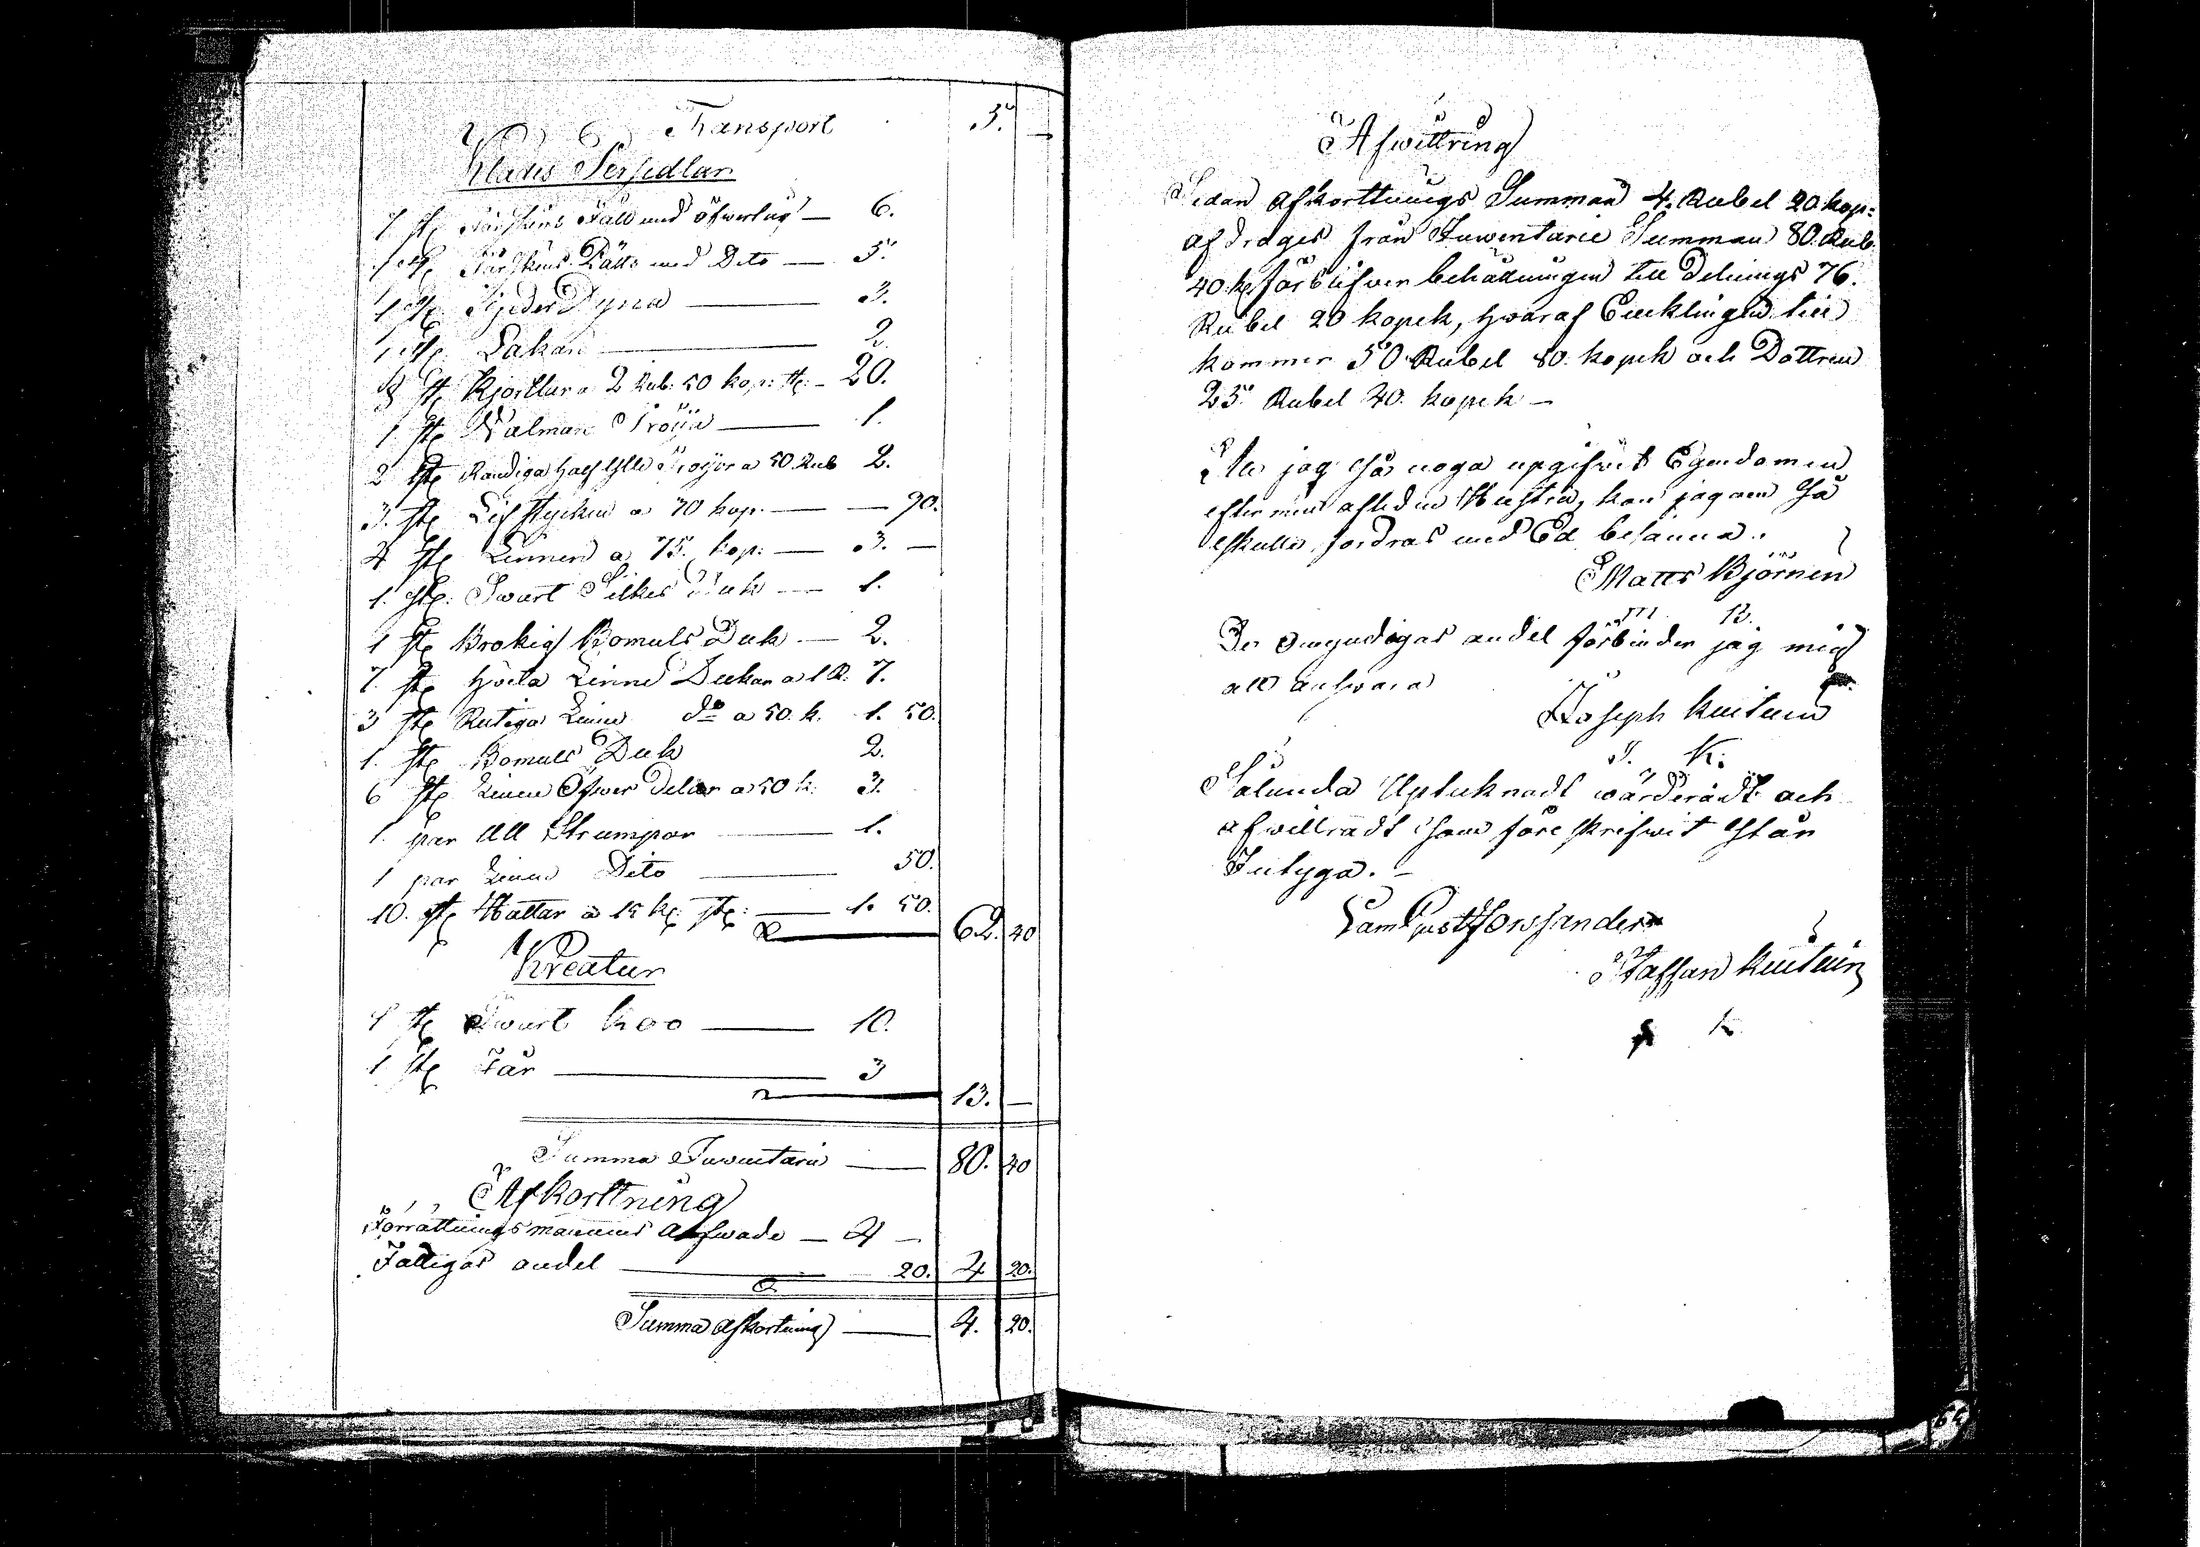 Transport 5. —
Klädes Persedlar
1 st Fårskins Fäll med öfvertyg — 6.
1 st Fårskins Fälls med Dito — 5.
1 st Fjeder Dyna — 3.
1 st Lakan — 2.
8 st Kjortlar a 2 Rub. 50 kop: st: — 20.
1. st Walmars Tröija — 1.
2 st Randiga half ylle Tröijor a 50. Rub 2.
3. st Lifstycken a 30 kop. — — 90.
4 st Linnen a 75. kop: — 3. —
1. st: Swart Silkes Duk — 1.
1 st Brokig Bomuls Duk — 2.
7. st Hvita Linne Dukar a 1 R: 7.
3 st Rutiga Linne do a 50. k. 1. 50.
1. st Bomuls Duk 2.
6 st Linne Öfver Delar a 50 k: 3.
1. par Ull Strumpor — 1.
1 par Linne Dito — 50.
10. st Hattar a 15 k: st: — 1. 50. 62. 40
Kreatur
1 st Swart Koo — 10.
1 st Får — 3
13. —
Summa Inwentarie — 80. 40
Afkorttning
Förrättningsmannens arfwade — 4 —
Fattigas andel — 20. 4 20.
Summa afkortning — 4. 20.
Afwittring
Sedan afkorttnings Summan 4. Rubel 20 kop:
afdrages från Inwentarie Summan 80. Rub.
40 k: förblifver behållningen till Delnings 76.
Rubel 20 kopek, hvaraf Encklingen till
kommer 50 Rubel 80. kopek och Dottren
25. Rubel 40. kopek —
Att jag så noga upgifvit Egendomen
efter min afledne Hustru, kan jag om så
skulle fordras med Ed besanna.
Matts Björnin
M B.
De omyndigas andel förbinder jag mig
att answara
Joseph Kuitunin
J. K:
Sålunda Uptecknadt wärderadt och
afwittradt som före skrifwit står
Intyga. —
Sam Gust Forssander
Staffan Kuitunin
S K